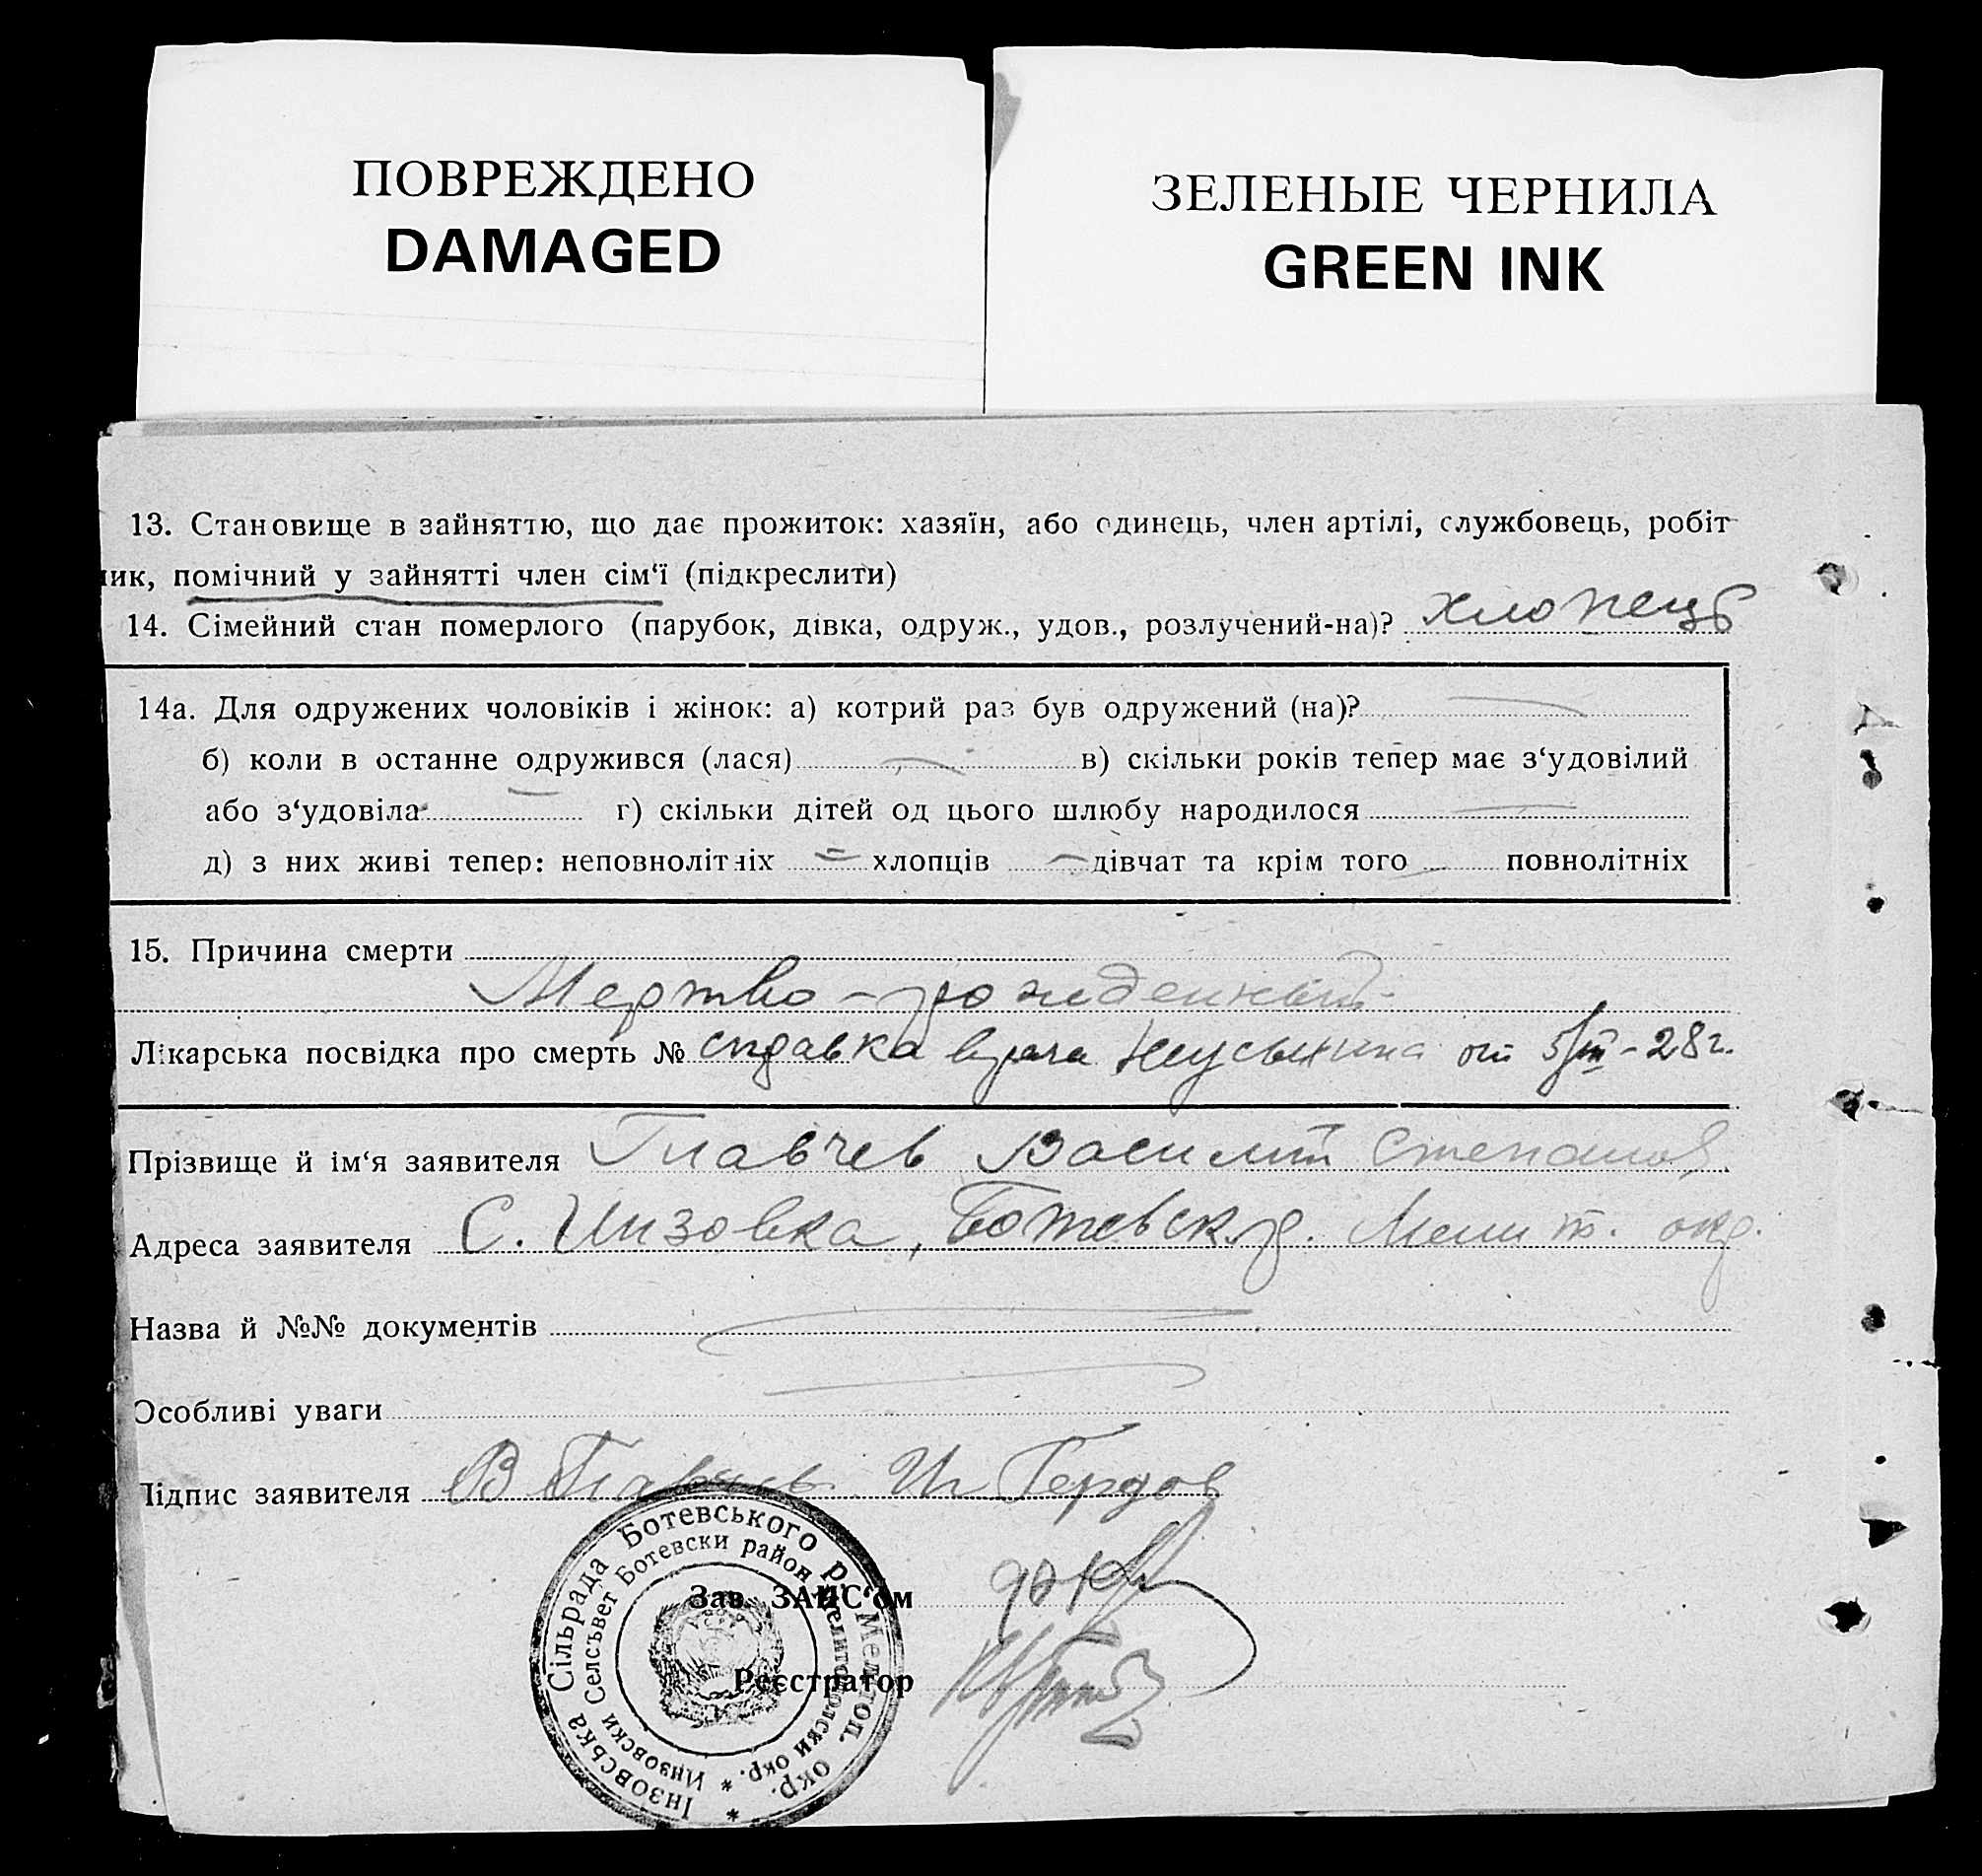 ПОВРЕЖДЕНО
DAMAGED
ЗЕЛЕНЫЕ ЧЕРНИЛА
GREEN INK
13. Становище в зайняттю, що дає прожиток: хазяїн, або одинець, член артілі, службовець, робіт-
ник, помічний у зайнятті член сім‘ї (підкреслити)
14. Сімейний стан померлого (парубок, дівка, одруж., удов., розлучений-на)? хлопець
14а. Для одружених чоловіків і жінок: а) котрий раз був одружений (на)?
б) коли в останне одружився (лася) в) скільки років тепер має з‘удовілий
або з‘удовіла г) скільки дітей од цього шлюбу народилося
д) з них живі тепер: неповнолітніх хлопців дівчат та крім того повнолітніх
15. Причина смерти
Мертво-рожденный
Лікарська посвідка про смерть № справка врача от 5/III-28г.
Прізвище й ім‘я заявителя Главчев Василий Степанов
Адреса заявителя С. Инзовка, Ботевск р. Мелит. окр.
Назва й №№ документів
Особливі уваги
Підпис заявителя В Главчев Ил Гердов
Зав. ЗАПС‘ом
Реєстратор
Інзовська Сільрада Ботевського р. Мелітоп. окр.
Инзовски Селсъвет Ботевски район Мелитополски окр.